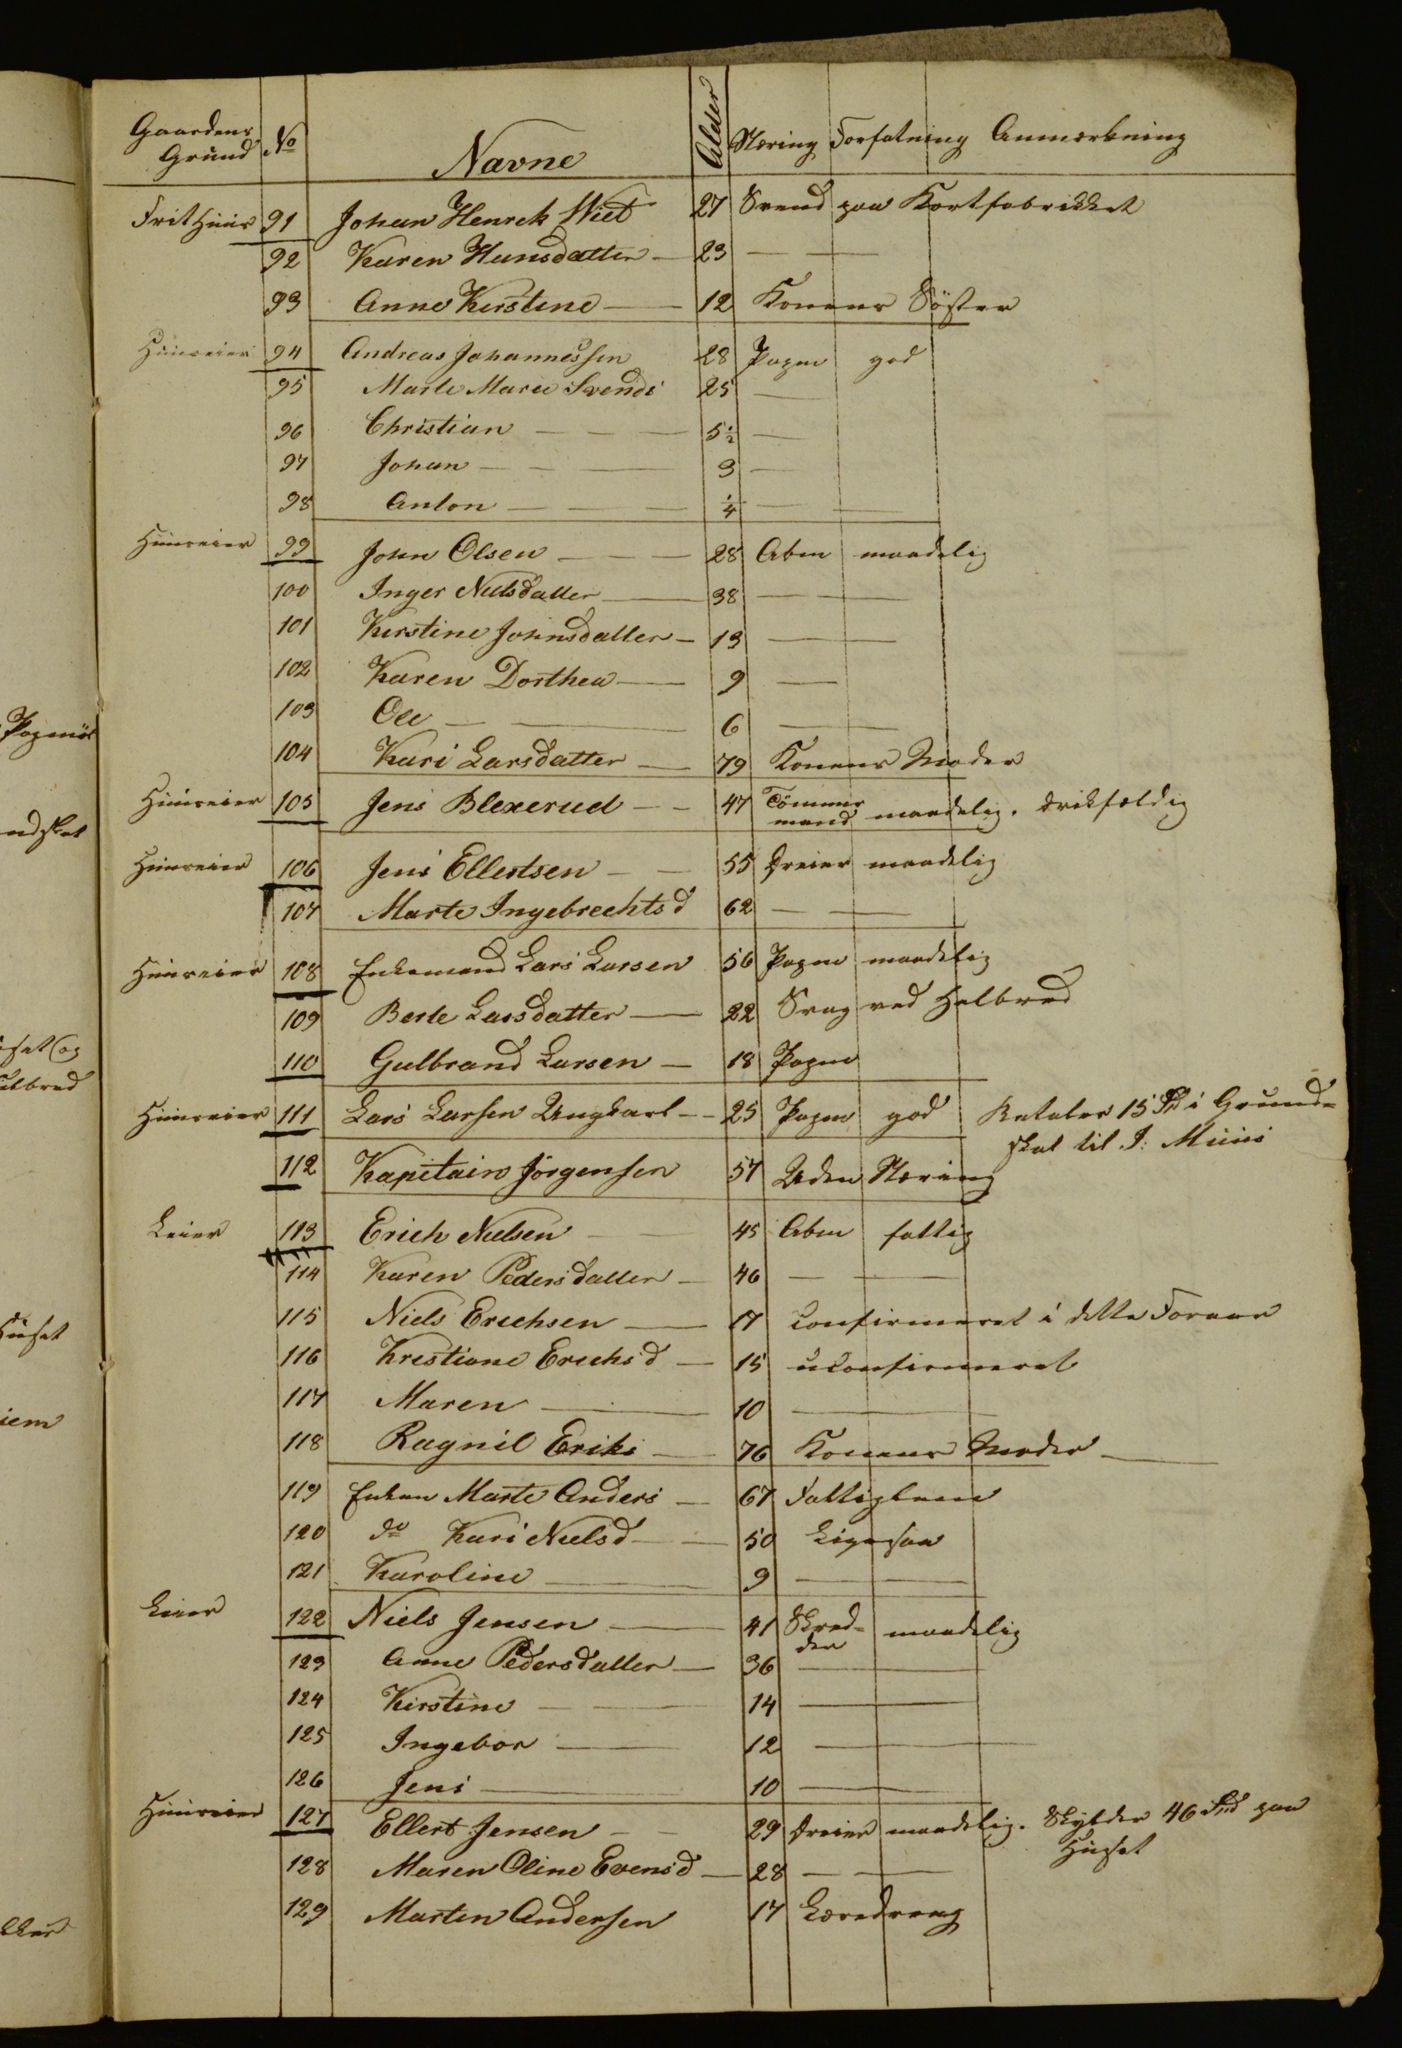 Gaardens Grund No Navne Alder Næring Forfatning Anmærkning
Frit Huus 91 Johan Henrek Wiet 27 Svend paa Kortfabrikket
92 Karen Hansdatter — 23 — —
93 Anne Kirstine — 12 Konens Söster
Huuseier 94 Andreas Johannessen 28 Papm god
95 Marte Marie Svends 25 —
96 Christian — — — 5½ —
97 Johan — — — 3 —
98 Anton — — — ¼ — —
Huuseier 99 John Olsen — — — 28 Abm maadelig
100 Inger Nielsdatter — 38 — —
101 Kirstine Johnsdatter — 13 — —
102 Karen Dorthea — 9 —
103 Ole — — 6 — —
104 Kari Larsdatter — 79 Konens Moder
Huuseier 105 Jens Blexerud — — 47 Tömmer
mand maadelig. drikfældig
Huuseier 106 Jens Ellertsen — — 55 Dreier maadelig
107 Marte Ingebrechtsd 62 — —
Huuseier 108 Enkemand Lars Larsen 56 Papm maadelig
109 Berte Larsdatter — 22 Svag ved Helbred
110 Gulbrand Larsen — 18 Papm
Huuseier 111 Lars Larsen Ungkarl — 25 Papm god Betaler 15 i Grund=
skat til J: Muus
112 Kapitain Jörgensen 57 Uden Næring
Leier 113 Erich Nielsen — — 45 Abm fattig
114 Karen Pedersdatter — 46 — —
115 Niels Erichsen — 17 Confirmeret i dette Foraar
116 Krestiane Erichsd — 15 uconfirmeret
117 Maren — 10 —
118 Ragnil Eriks — 76 Konens Moder —
119 Enken Marte Anders — 67 Fattiglem
120 do Kari Nielsd — — 50 Ligesaa
121 Karoline — 9 — —
Leier 122 Niels Jensen — 41 Skred=
der maadelig
123 Anne Pedersdatter — 36 — —
124 Kirstine — — 14 — —
125 Ingebor — 12 — —
126 Jens — 10 — —
Huuseier 127 Ellert Jensen — — 29 Dreier maadelig. Skylder 46 Spd paa
Huset
128 Maren Oline Evensd — 28 — —
129 Marten Andersen 17 Læredreng